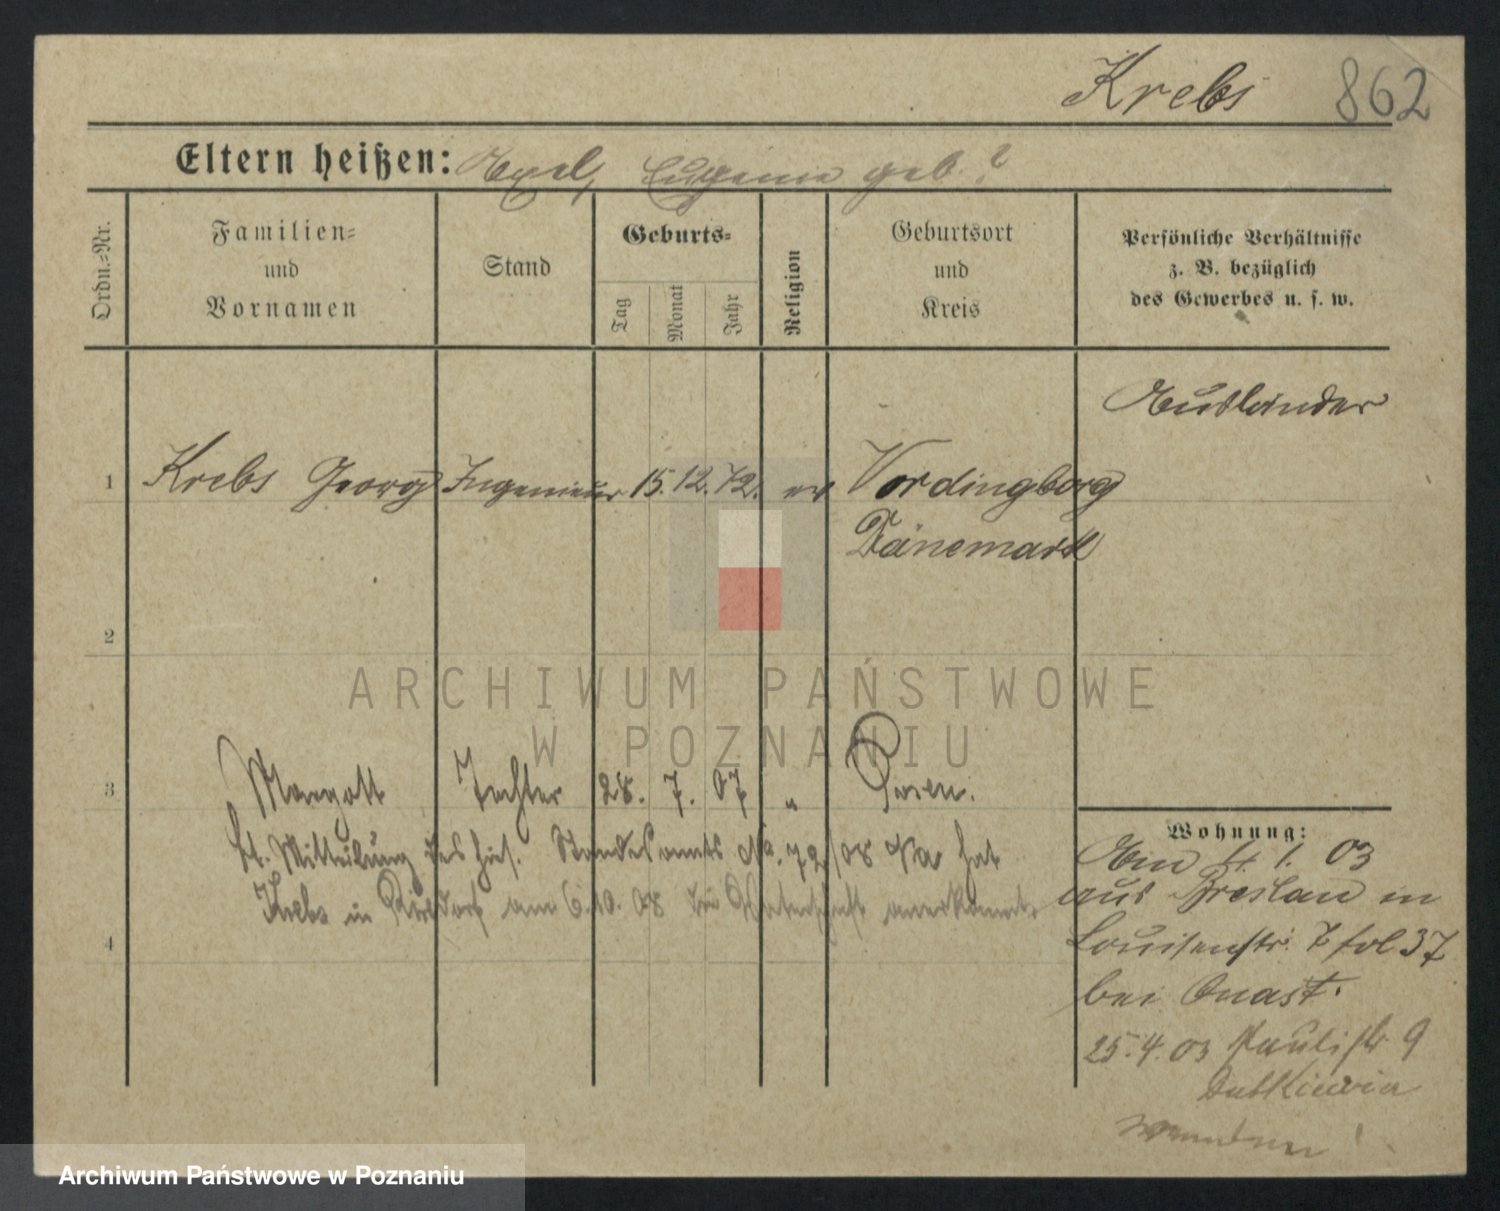 Krebs 862
Eltern heißen: Axel, Eugenie geb. ?
Ordn.-Nr.
Familien-
und
Vornamen
Stand
Geburts-
Tag
Monat
Jahr
Religion
Geburtsort
und
Kreis
Persönliche Verhältnisse
z. B. bezüglich
des Gewerbes u. s. w.
Ausländer
1 Krebs Georg Ingenieur 15. 12. 72. ev Vordingborg
Dänemark
2
ARCHIWUM PAŃSTWOWE
W POZNANIU
3 Margott Tochter 28. 7. 07 " Posen.
Lt. Mitteilung des hies. Standesamts No. 72/08 hat
Krebs in am 6.10.08 die Vaterschaft anerkannt.
4
Wohnung:
4. 1. 03
aus Breslau in
Louisenstr. 7 fol 37
bei Quast.
25.4.03 Paulistr. 9
Archiwum Państwowe w Poznaniu